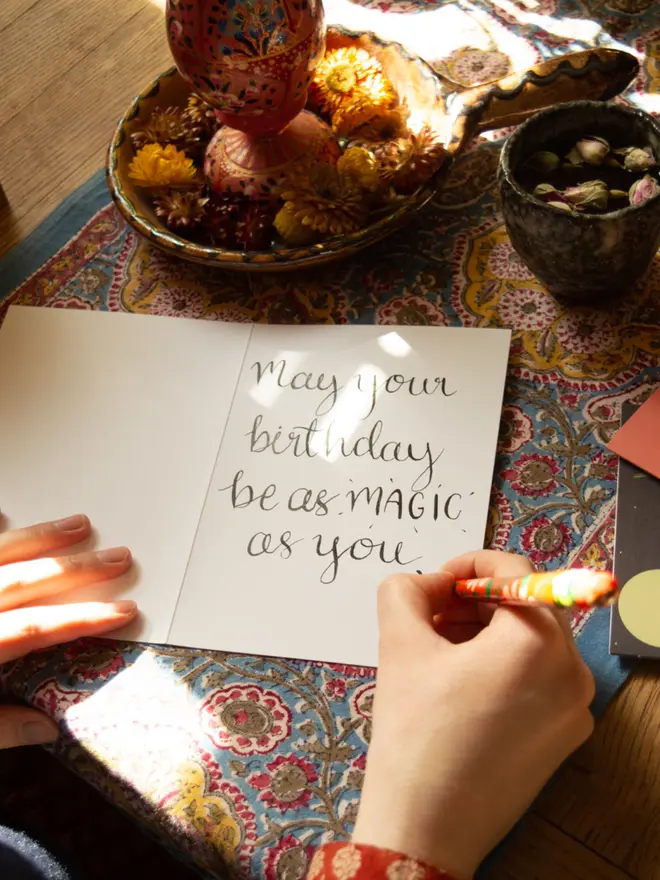 May your
birthday
be as MAGIC
as you.